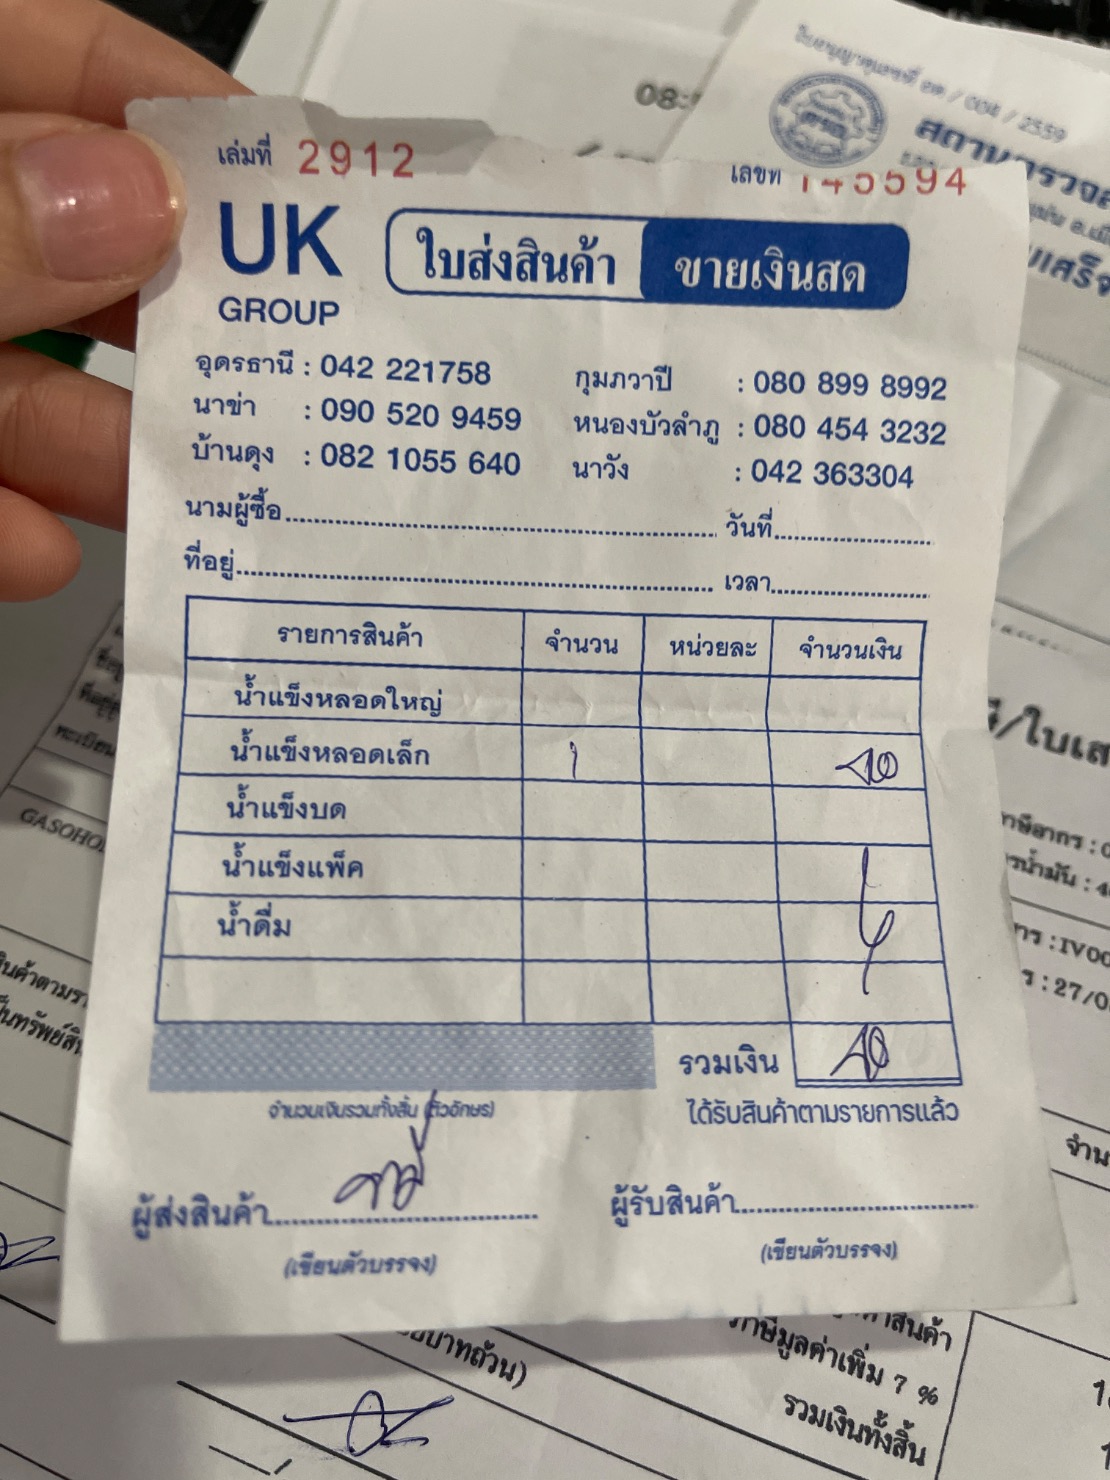 เล่มที่ 2912
เลขที่ 145594
UK
GROUP
ใบส่งสินค้า ขายเงินสด
อุดรธานี : 042 221758 กุมภวาปี : 080 899 8992
นาข่า : 090 520 9459 หนองบัวลำภู : 080 454 3232
บ้านดุง : 082 1055 640 นาวัง : 042 363304
นามผู้ซื้อ วันที่
ที่อยู่ เวลา
รายการสินค้า จำนวน หน่วยละ จำนวนเงิน
น้ำแข็งหลอดใหญ่
น้ำแข็งหลอดเล็ก 1 40
น้ำแข็งบด
น้ำแข็งแพ็ค
น้ำดื่ม
รวมเงิน 40
จำนวนเงินรวมทั้งสิ้น (ตัวอักษร) ได้รับสินค้าตามรายการแล้ว
ผู้ส่งสินค้า ผู้รับสินค้า
(เขียนตัวบรรจง) (เขียนตัวบรรจง)
ใบอนุญาตเลขที่ อด / 004 / 2559
GASOHO
ภาษีมูลค่าเพิ่ม 7 %
รวมเงินทั้งสิ้น